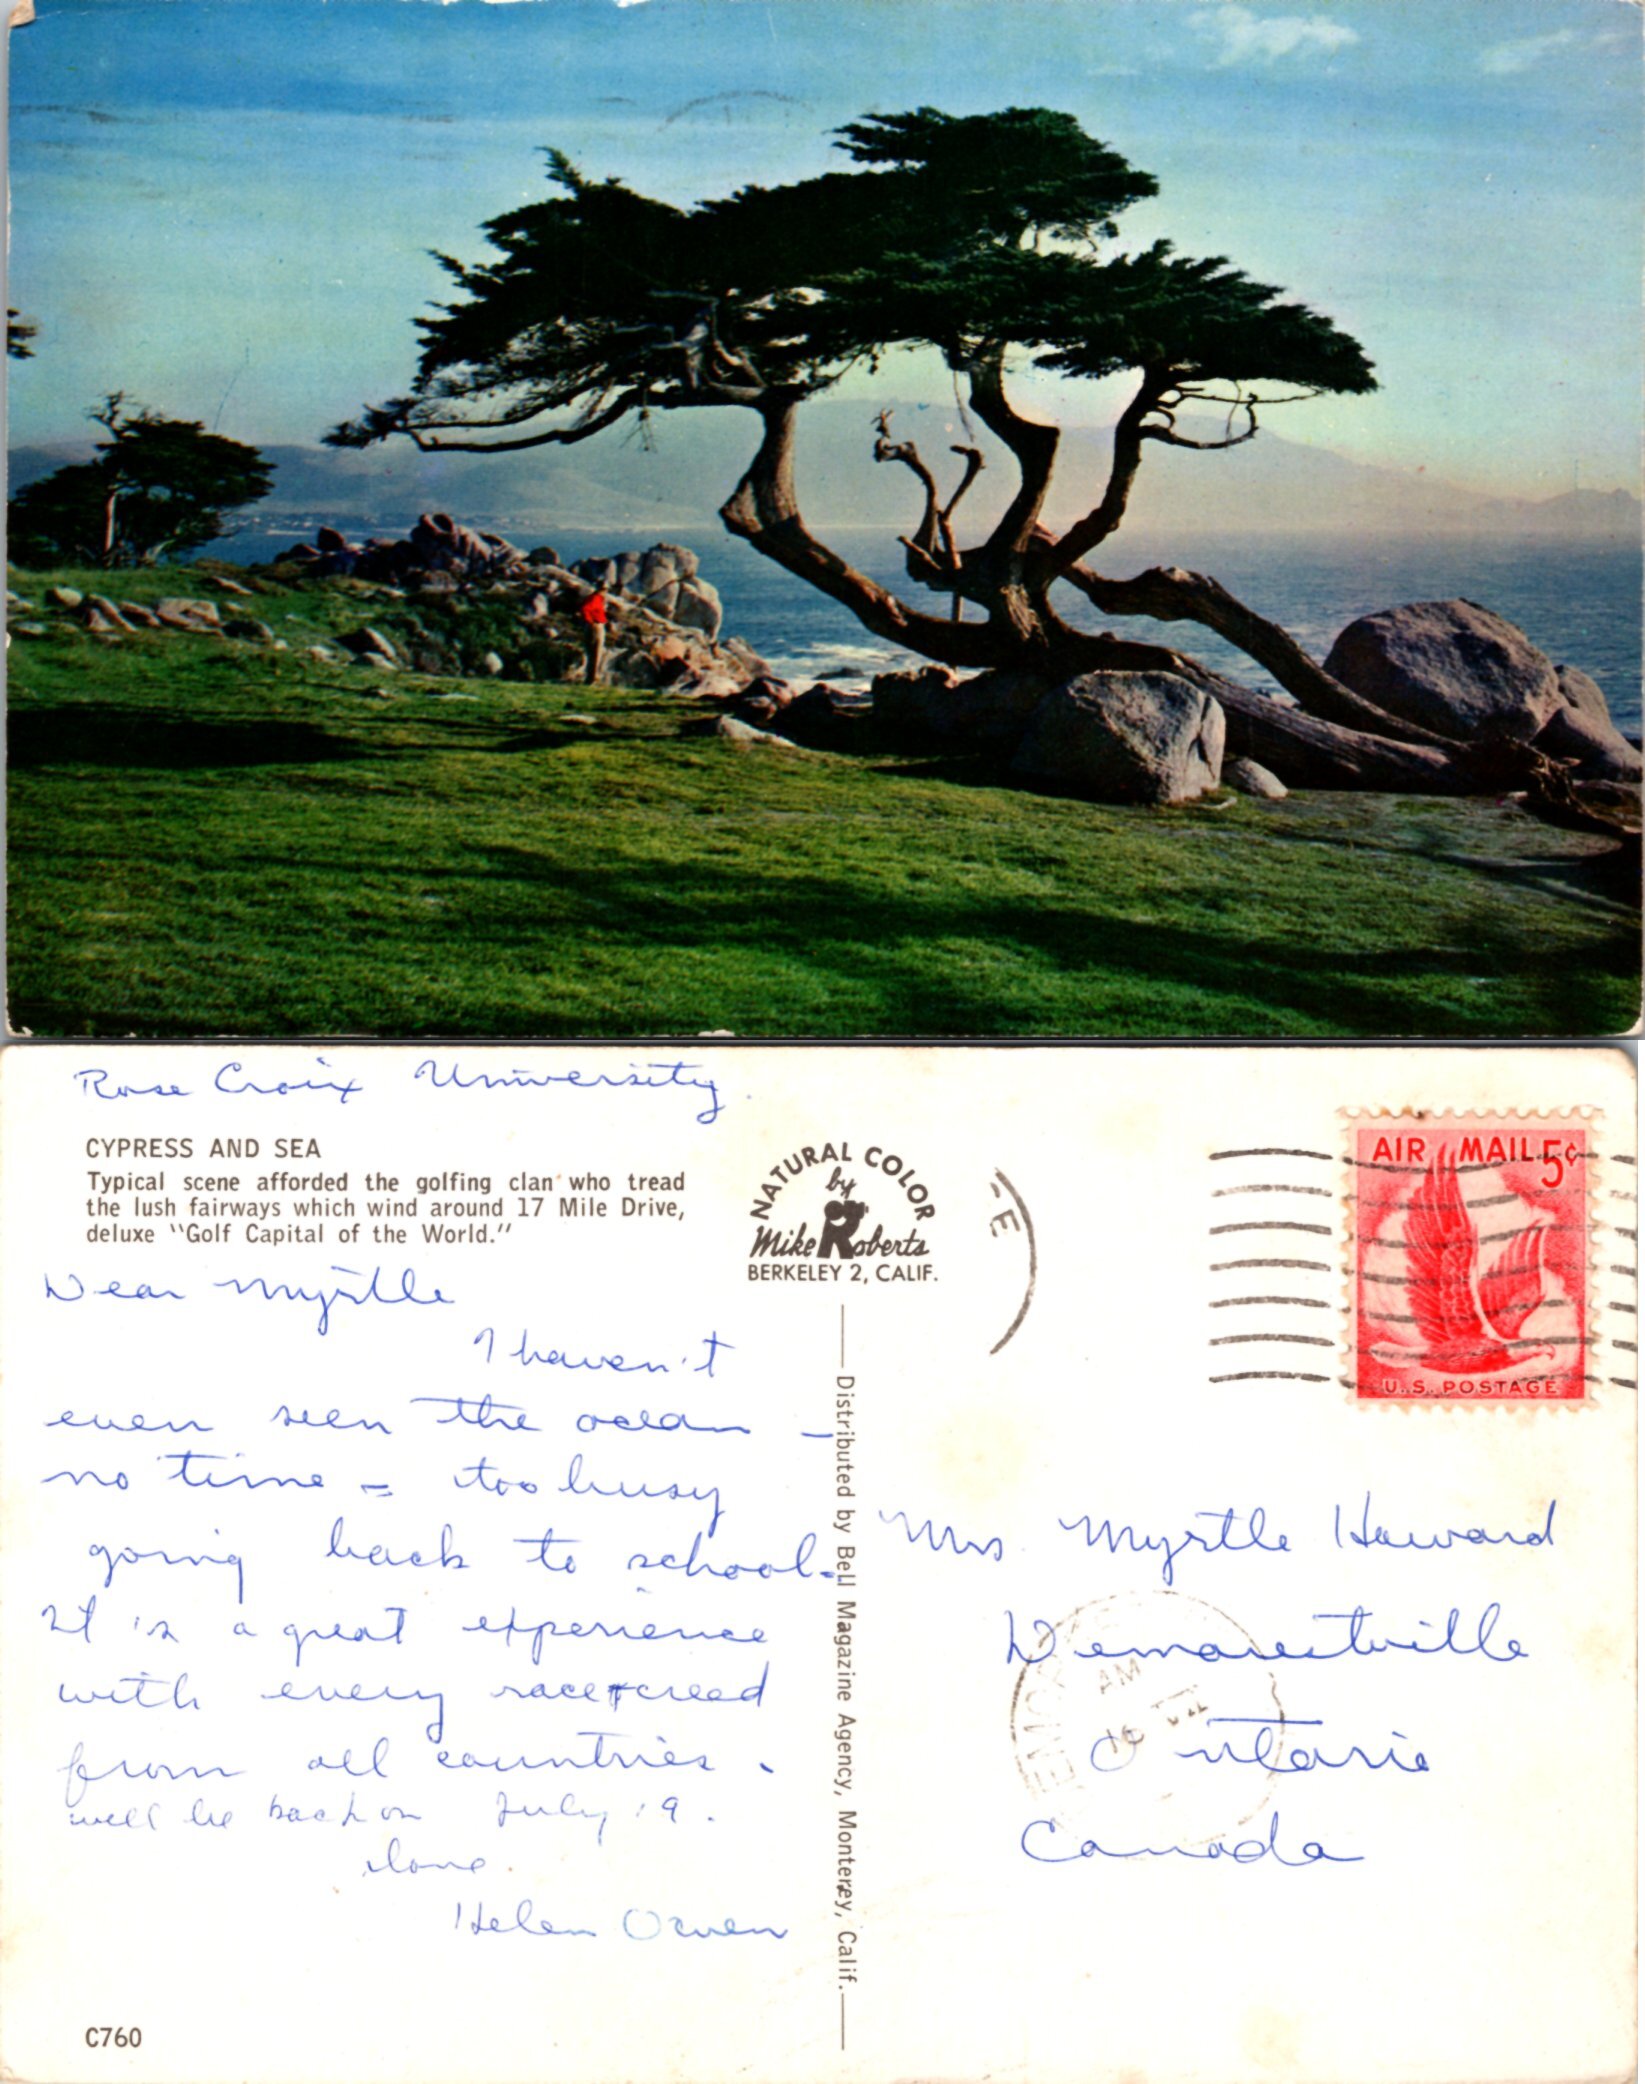 Rose Croix University.
CYPRESS AND SEA
Typical scene afforded the golfing clan who tread
the lush fairways which wind around 17 Mile Drive,
deluxe "Golf Capital of the World."
Dear Myrtle
I haven't
even seen the ocean –
no time = too busy
going back to school.
It is a great experience
with every race + creed
from all countries.
will be back on July 19.
love.
Helen Orven
C760
NATURAL COLOR
by
Mike Roberts
BERKELEY 2, CALIF.
Distributed by Bell Magazine Agency, Monterey, Calif.
AIR MAIL 5¢
U.S. POSTAGE
Mrs. Myrtle Howard
Demorestville
Ontario
Canada
AM
16